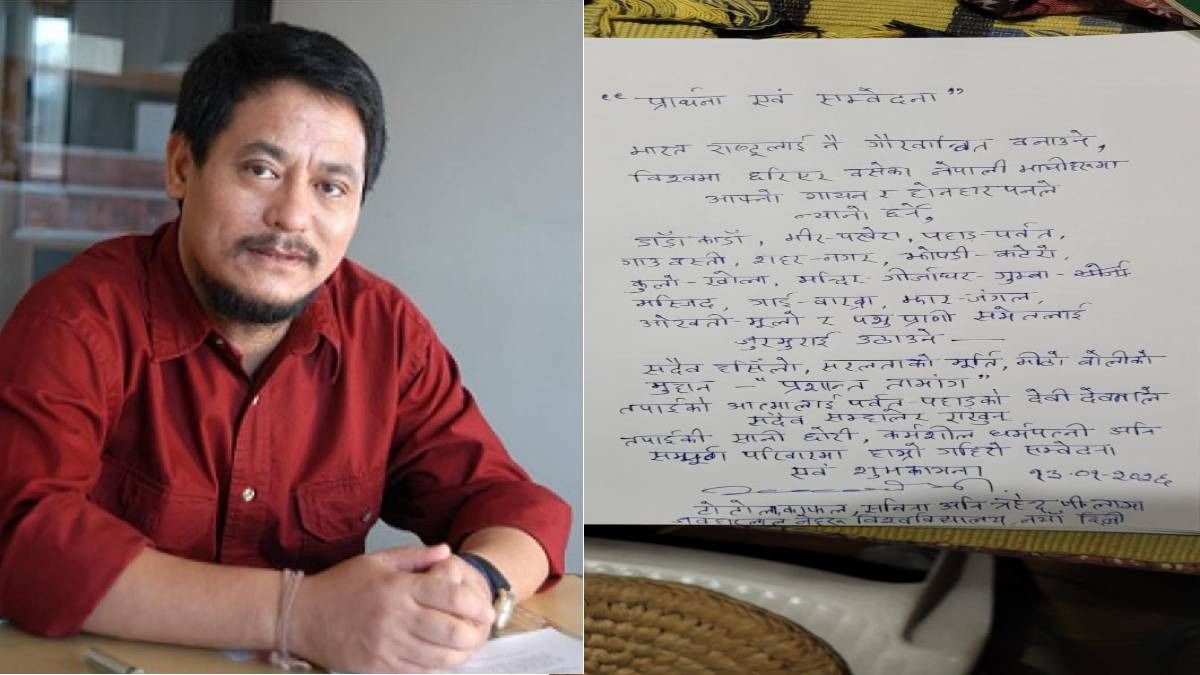 “ प्रार्थना एवं सम्वेदना ”
भारत राष्ट्रलाई नै गौरवान्वित बनाउने,
विश्वमा छरिएर बसेका नेपाली माझीहरूमा
आफ्नो गायन र होनहारपनले
न्यानो छर्ने,
डाँडा काडाँ, भीर-पखेरा, पहाड-पर्वत,
गाउ बस्ती, शहर-नगर, झोपडी-कटेरो
कुलो-खोला, मन्दिर-गीर्जाघर-गुम्बा-
मस्जिद, गाई-बाख्रा, झार-जंगल,
ओखती-मूलो र पशु प्राणी समेतलाई
जुरमुराई उठाउने —
सदैव हसिँलो, सरलताको मूर्ति, मीठो बोलीको
मुहान - “ प्रशान्त तामांग ”
तपाईको आत्मालाई पर्वत-पहाडको देवी देवताले
सदैव सम्हालेर राखुन
तपाईकी सानी छोरी, कर्मशील धर्मपत्नी अनि
सम्पूर्ण परिवारमा हाम्रो गहिरो सम्वेदना
एवं शुभकामना। १३-०१-२०२६
सबिना अनि महेन्द्र पी लामा
जवाहरलाल नेहरू विश्वविद्यालय, नयाँ दिल्ली